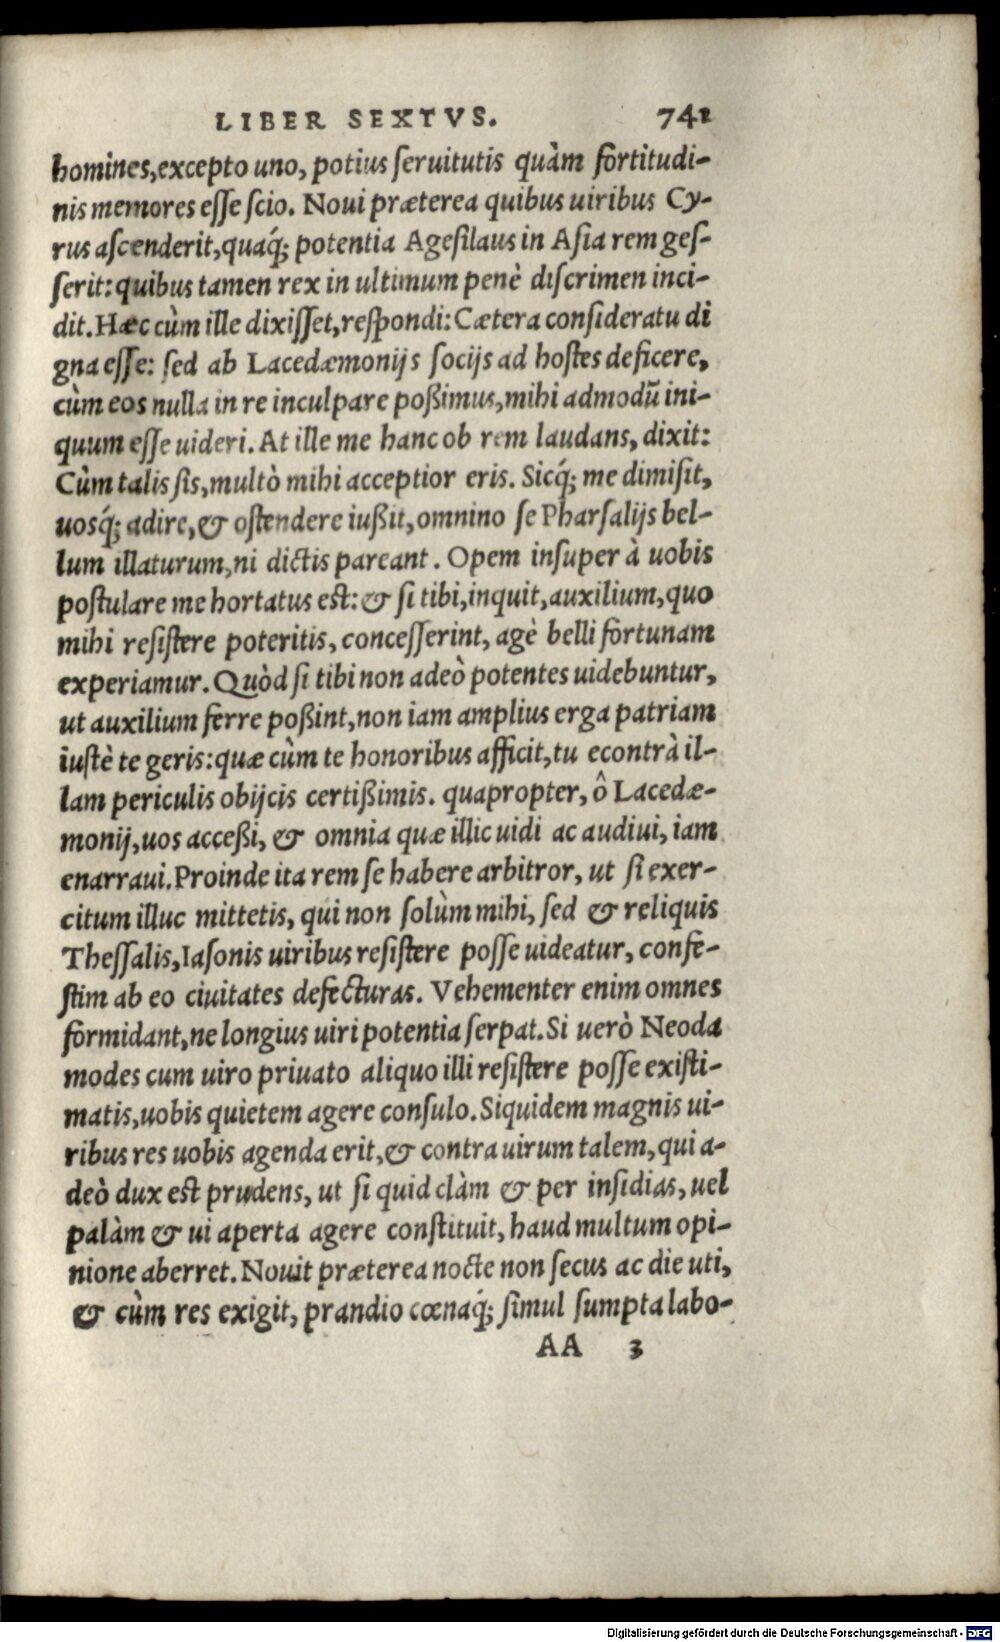 LIBER SEXTVS. 741
homines,excepto uno, potius ſeruitutis quàm fortitudi-
nis memores eſſe ſcio. Noui præterea quibus uiribus Cy-
rus aſcenderit,quaq́; potentia Ageſilaus in Aſia rem geſ-
ſerit: quibus tamen rex in ultimum penè diſcrimen inci-
dit. Hæc cùm ille dixiſſet,reſpondi: Cætera conſideratu di
gna eſſe: ſed ab Lacedæmonijs ſocijs ad hoſtes deficere,
cùm eos nulla in re inculpare poßimus,mihi admodū ini-
quum eſſe uideri. At ille me hanc ob rem laudans, dixit:
Cùm talis ſis,multò mihi acceptior eris. Sicq́; me dimiſit,
uosq́; adire,& oſtendere iußit,omnino ſe Pharſalijs bel-
lum illaturum,ni dictis pareant. Opem inſuper à uobis
poſtulare me hortatus eſt: & ſi tibi,inquit,auxilium,quo
mihi reſiſtere poteritis, conceſſerint, agè belli fortunam
experiamur. Quòd ſi tibi non adeò potentes uidebuntur,
ut auxilium ferre poßint,non iam amplius erga patriam
iuſtè te geris: quæ cùm te honoribus afficit,tu econtrà il-
lam periculis obijcis certißimis. quapropter, ô Lacedæ-
monij,uos acceßi, & omnia quæ illic uidi ac audiui, iam
enarraui. Proinde ita rem ſe habere arbitror, ut ſi exer-
citum illuc mittetis, qui non ſolùm mihi, ſed & reliquis
Theſſalis,Iaſonis uiribus reſiſtere poſſe uideatur, confe-
ſtim ab eo ciuitates defecturas. Vehementer enim omnes
formidant,ne longius uiri potentia ſerpat. Si uerò Neoda
modes cum uiro priuato aliquo illi reſiſtere poſſe exiſti-
matis,uobis quietem agere conſulo. Siquidem magnis ui-
ribus res uobis agenda erit,& contra uirum talem,qui a-
deò dux eſt prudens, ut ſi quid clàm & per inſidias, uel
palàm & ui aperta agere conſtituit, haud multum opi-
nione aberret. Nouit præterea nocte non ſecus ac die uti,
& cùm res exigit, prandio cœnaq́; ſimul ſumpta labo-
AA 3
Digitalisierung gefördert durch die Deutsche Forschungsgemeinschaft - DFG